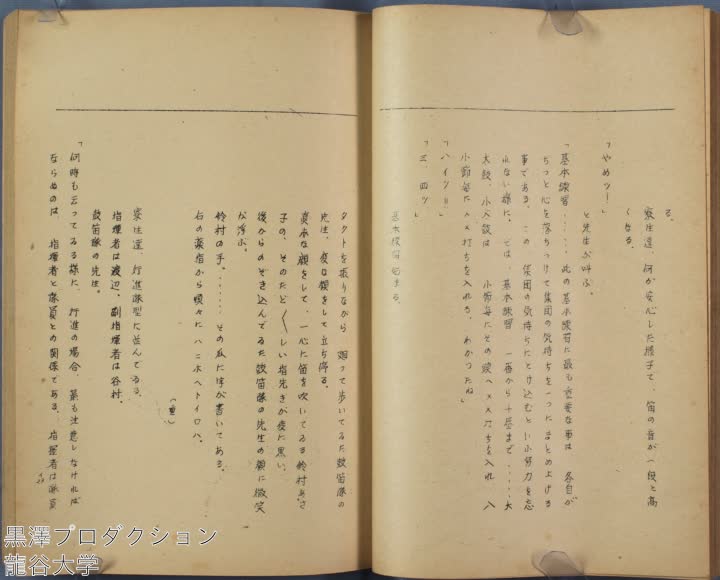 る。
寮生達、何か安心した様子で、笛の音が一段と高
くなる。
「やめッ！」
と先生が叫ぶ。
「基本練習‥‥‥此の基本練習に最も重要な事は、各自が
ちつと心を落ちつけて集団の気持ちを一つにまとめ上げる
事である。この、集団の気持ちにとけ込むと言ふ努力を忘
れない様に。では、基本練習、一番から十番まで‥‥‥大
太鼓、小太鼓は、小節毎にその頭へメメ打ちを入れ、八
小節毎にメメ打ちを入れる、わかつたね」
「ハイッ！」
「三、四ッ」
基本練習始まる。
タクトを振りながら、廻つて歩いてゐた鼓笛隊の
先生、変な顔をして立ち停る。
真赤な顔をして、一心に笛を吹いてゐる鈴村あさ
子の、そのたど〱しい指先きが変に黒い。
後からのぞき込んでゐた鼓笛隊の先生の顔に微笑
が浮ぶ。
鈴村の手。‥‥‥その爪に字が書いてある。
右の薬指から順々にハニホヘトイロハ。
寮生達、行進隊型に並んでゐる。
指揮者は渡辺、副指揮者は谷村。
鼓笛隊の先生。
「何時も云つてゐる様に、行進の場合、最も注意しなければ
ならぬのは、指揮者と隊員との関係である。指揮者は隊員
黒澤プロダクション
龍谷大学